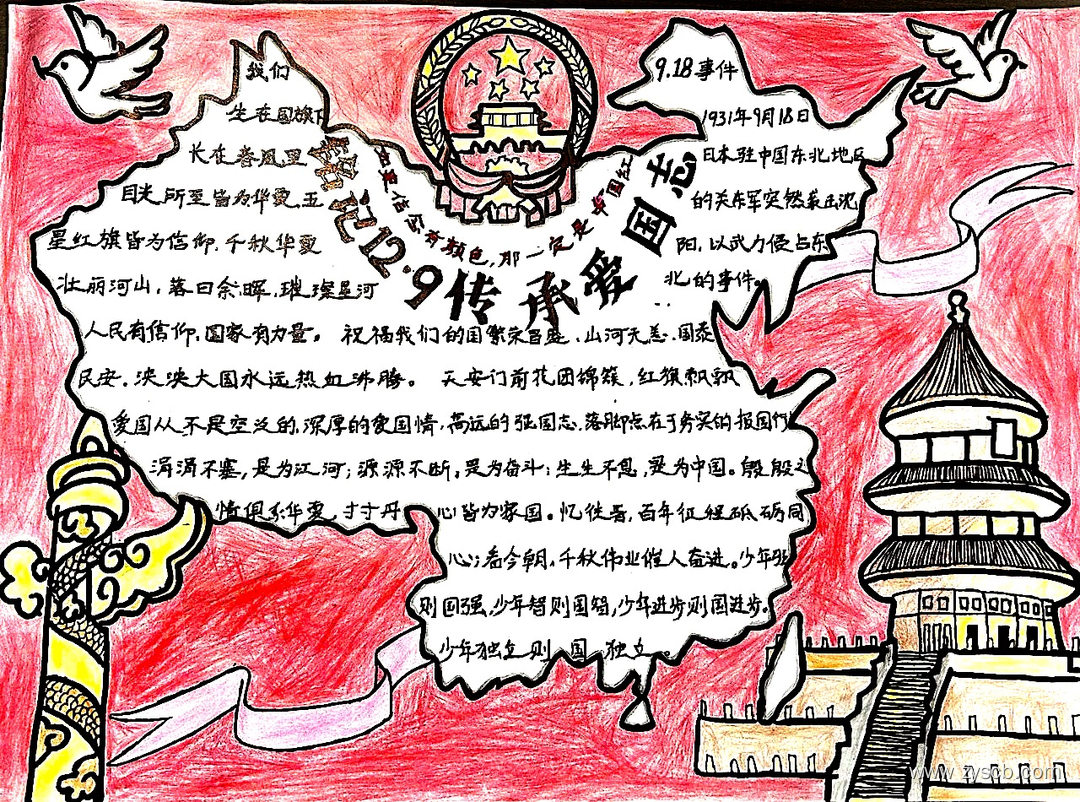 铭记12.9传承爱国志
若是信念有颜色,那一定是中国红
我们
生在国旗下
长在春风里
目光所至皆为华夏,五
星红旗皆为信仰.千秋华夏
壮丽河山,落日余晖,璀璨星河
人民有信仰.国家有力量。祝福我们的国繁荣昌盛、山河无恙、国泰
民安.泱泱大国永远热血沸腾。天安门前花团锦簇,红旗飘飘
爱国从不是空泛的,深厚的爱国情,高远的强国志,落脚点在于务实的报国行
涓涓不塞,是为江河;源源不断,是为奋斗;生生不息,是为中国。殷殷之
情俱系华夏,寸寸丹心皆为家国。忆往昔,百年征程砥砺同
心;看今朝,千秋伟业催人奋进。少年强
则国强,少年智则国智,少年进步则国进步。
少年独立则国独立
9.18事件
1931年9月18日
日本驻中国东北地区
的关东军突然袭击沈
阳,以武力侵占东
北的事件
www.zyscb.com